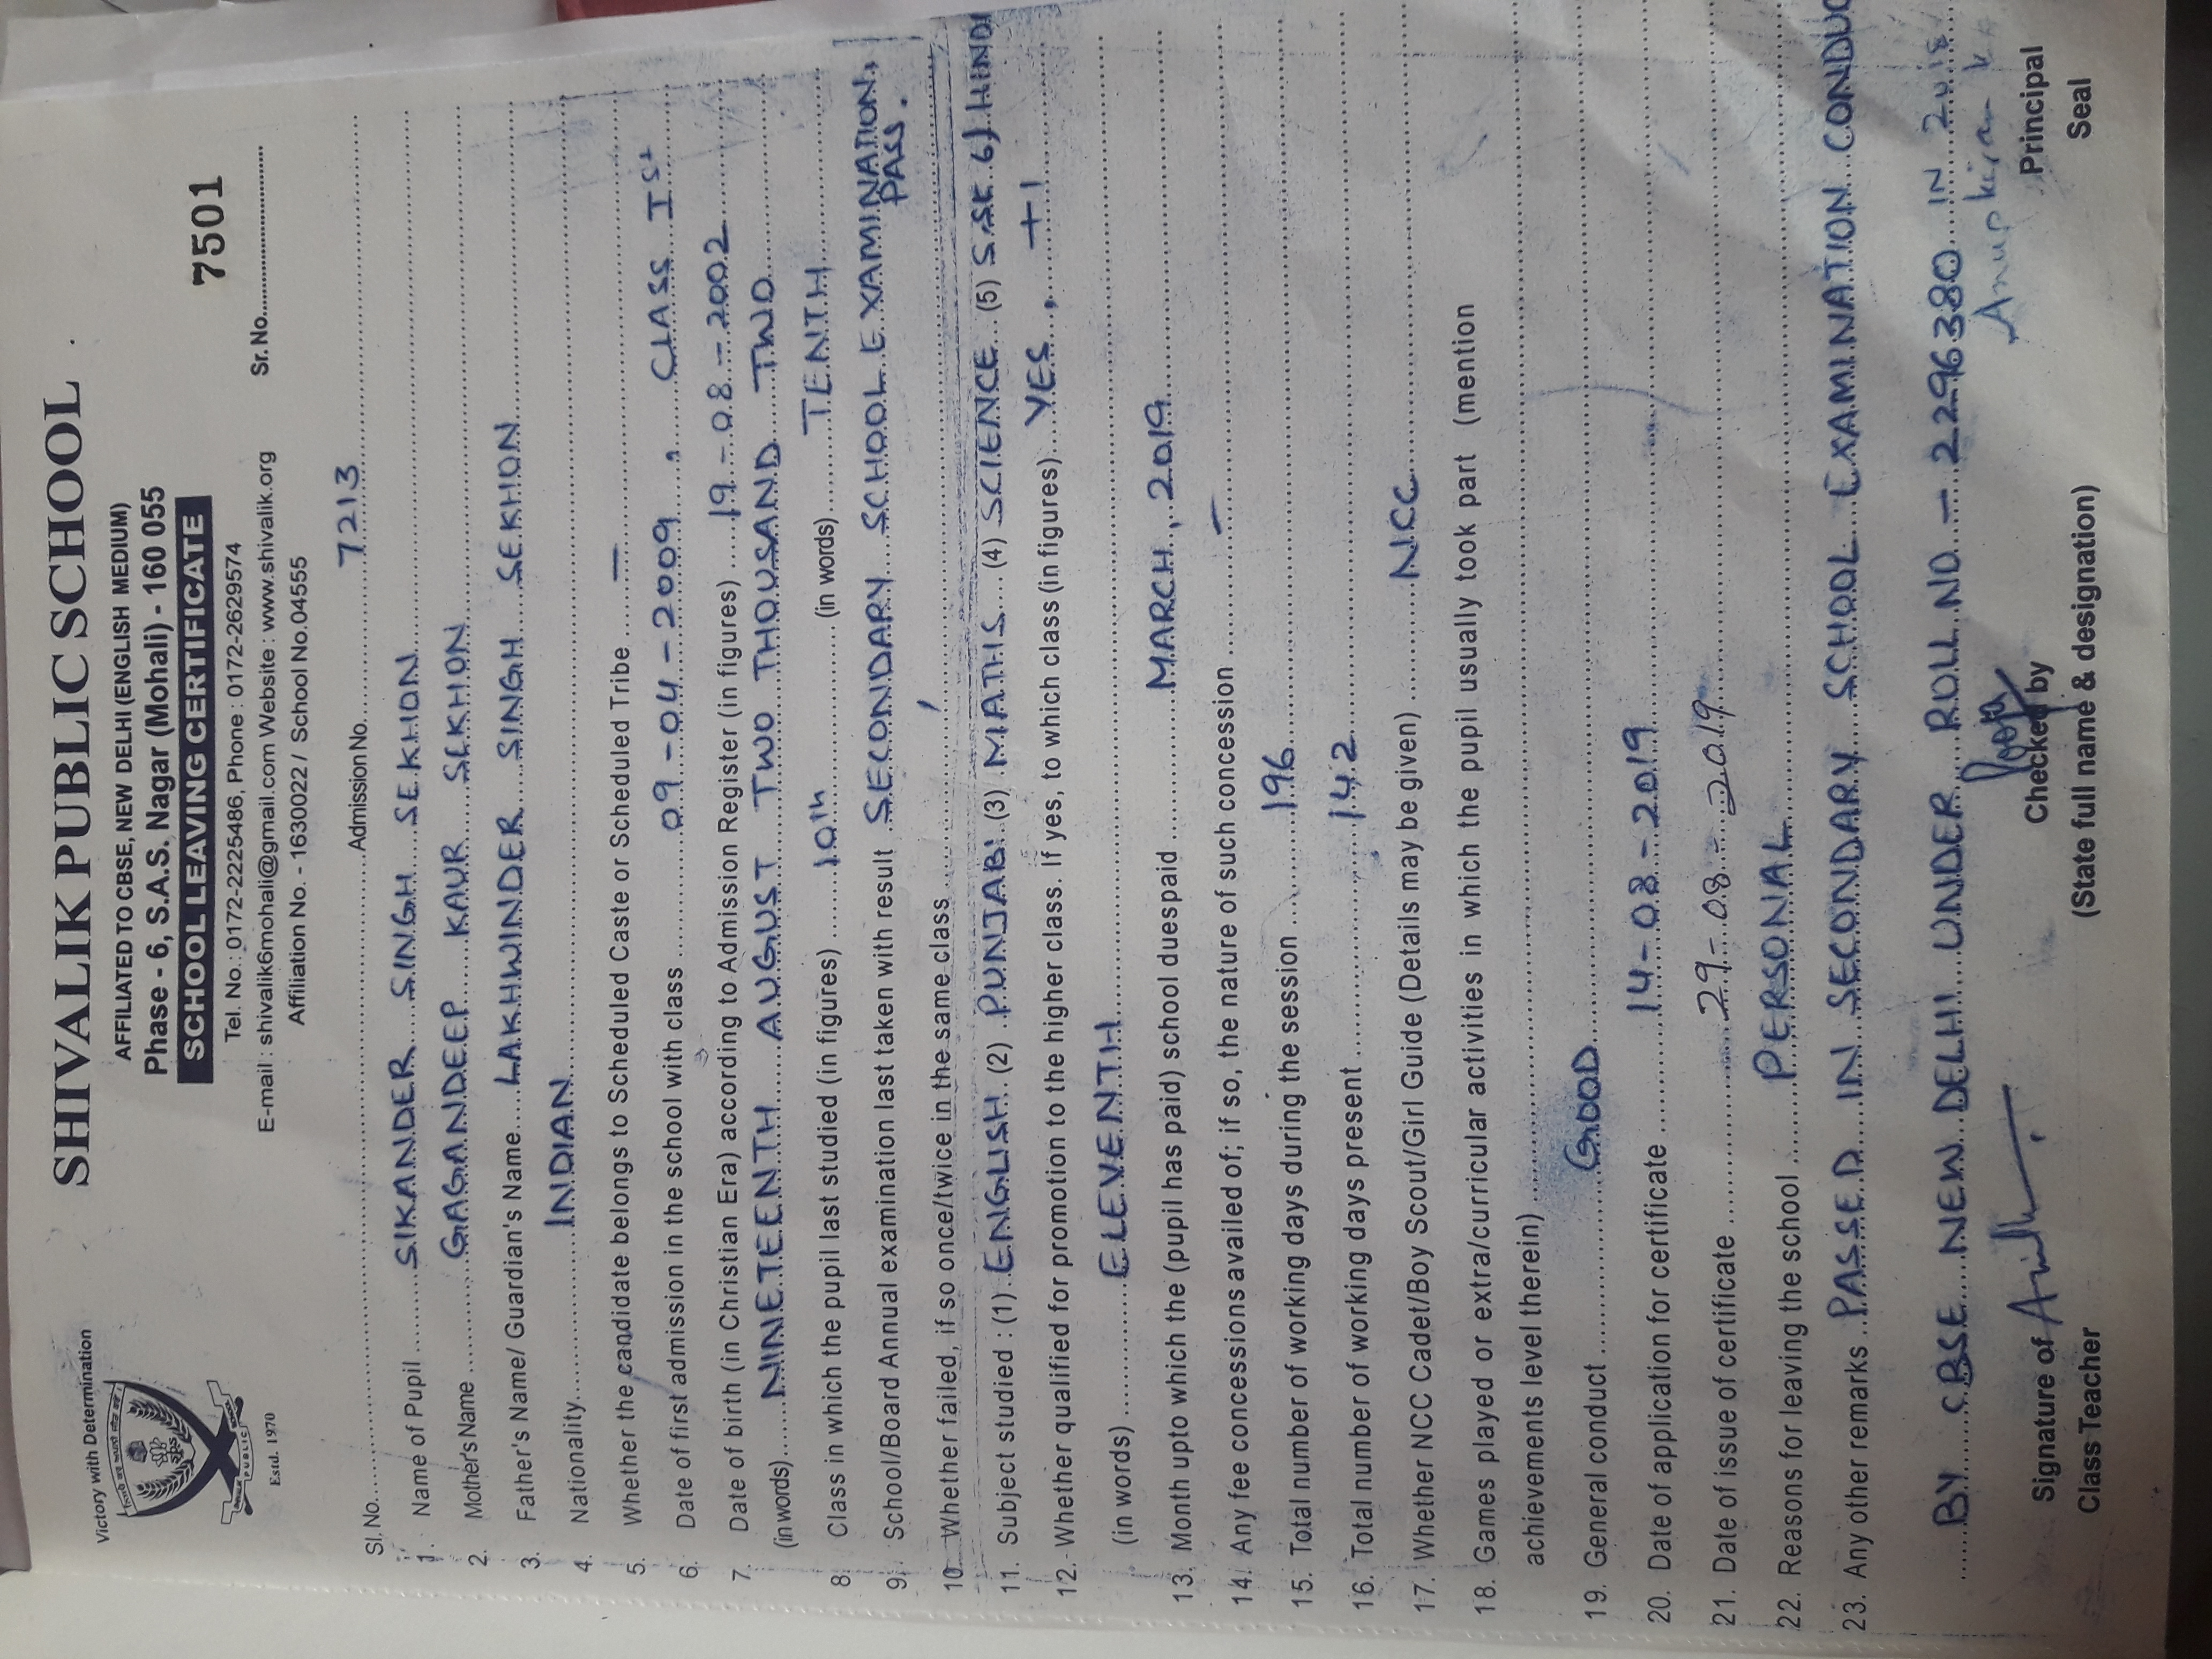 Victory with Determination
SHIVALIK PUBLIC SCHOOL
AFFILIATED TO CBSE, NEW DELHI (ENGLISH MEDIUM)
Phase - 6, S.A.S. Nagar (Mohali) - 160 055
SCHOOL LEAVING CERTIFICATE
7501
Tel. No.: 0172-2225486, Phone : 0172-2629574
E-mail : shivalik6mohali@gmail.com Website : www.shivalik.org
Sr. No.
Affiliation No. - 1630022 / School No.04555
Estd. 1970
Sl. No. Admission No. 7213
1. Name of Pupil SIKANDER SINGH SEKHON
2. Mother's Name GAGANDEEP KAUR SEKHON
3. Father's Name/ Guardian's Name LAKHWINDER SINGH SEKHON
4. Nationality INDIAN
5. Whether the candidate belongs to Scheduled Caste or Scheduled Tribe —
6. Date of first admission in the school with class 09-04-2009, CLASS Ist
7. Date of birth (in Christian Era) according to Admission Register (in figures) 19-08-2002
(in words) NINETEENTH AUGUST TWO THOUSAND TWO
8. Class in which the pupil last studied (in figures) 10th (in words) TENTH
9. School/Board Annual examination last taken with result SECONDARY SCHOOL EXAMINATION,
PASS.
10. Whether failed, if so once/twice in the same class
11. Subject studied : (1) ENGLISH (2) PUNJABI (3) MATHS (4) SCIENCE (5) S.St 6) HINDI
12. Whether qualified for promotion to the higher class. If yes, to which class (in figures) YES, +1
(in words) ELEVENTH
13. Month upto which the (pupil has paid) school duespaid MARCH, 2019
14. Any fee concessions availed of; if so, the nature of such concession —
15. Total number of working days during the session 196
16. Total number of working days present 142
17. Whether NCC Cadet/Boy Scout/Girl Guide (Details may be given) NCC
18. Games played or extra/curricular activities in which the pupil usually took part (mention
achievements level therein)
19. General conduct GOOD
20. Date of application for certificate 14-08-2019
21. Date of issue of certificate 29-08-2019
22. Reasons for leaving the school PERSONAL
23. Any other remarks PASSED IN SECONDARY SCHOOL EXAMINATION CONDUC
BY CBSE NEW DELHI UNDER ROLL NO - 2296380 IN 2018
Signature of
Class Teacher
Checked by
(State full name & designation)
Principal
Seal